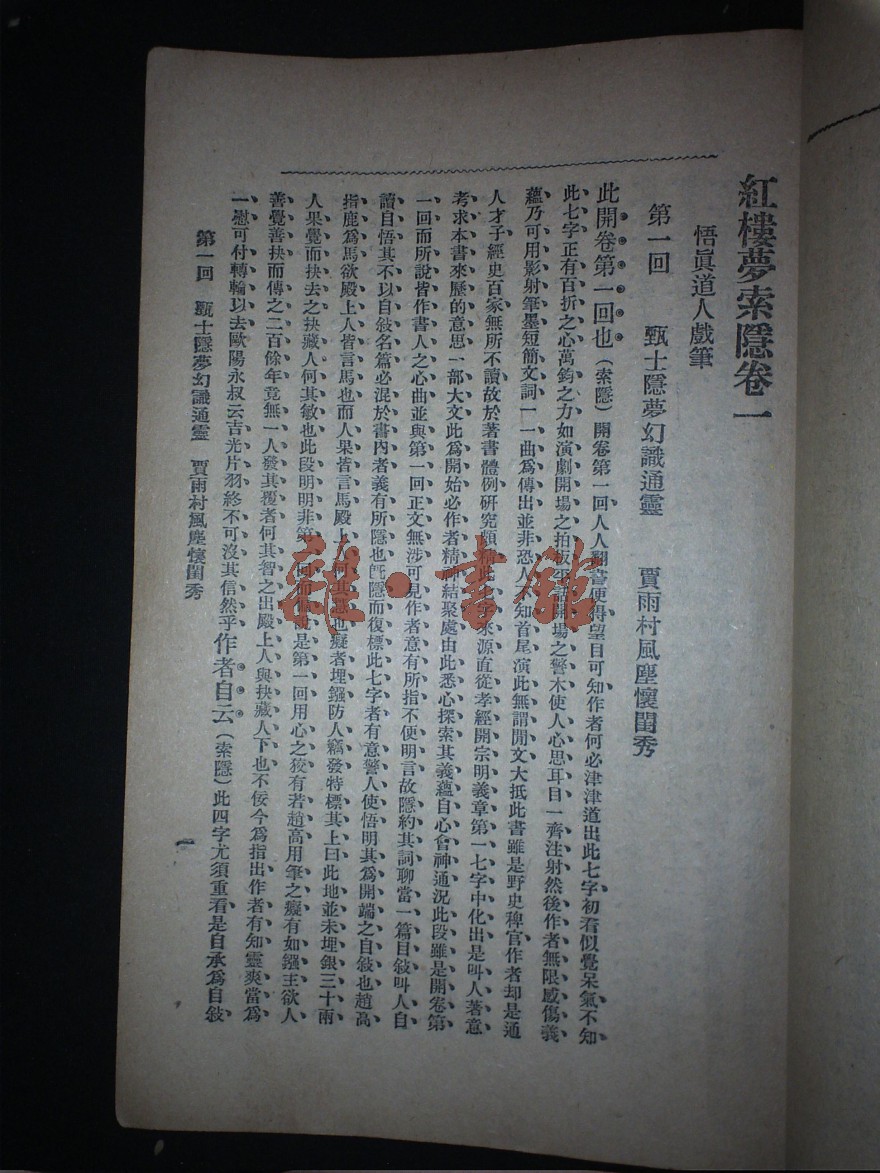 紅樓夢索隱卷一
悟眞道人戲筆
第一回 甄士隱夢幻識通靈 賈雨村風塵懷閨秀
此開卷第一回也(索隱)開卷第一回人人翻書便得望目可知作者何必津津道出此七字初看似覺呆氣不知
此七字正有百折之心萬鈞之力如演劇開場之拍板平話開場之警木使人心思耳目一齊注射然後作者無限感傷義
蘊乃可用影射筆墨短簡文詞一一曲爲傳出並非恐人不知首尾演此無謂閒文大抵此書雖是野史稗官作者却是通
人才子經史百家無所不讀故於著書體例研究頗精此七字來源直從孝經開宗明義章第一七字中化出是叫人著意
考求本書來歷的意思一部大文此爲開始必作者精神結聚處由此悉心探索其義蘊自心會神通況此段雖是開卷第
一回而所說皆作書人之心曲並與第一回正文無涉可見作者意有所指不便明言故隱約其詞聊當一篇目敍叫人自
讀自悟其不以自敍名篇必混於書內者義有所隱也旣隱而復標此七字者有意警人使悟明其爲開端之自敍也趙高
指鹿爲馬欲殿上人皆言馬也而人杲皆言馬殿上人何其愚也癡者埋鏹防人竊發特標其上曰此地並未埋銀三十兩
人果覺而抉去之抉藏人何其敏也此段明明非第一回而偏說是第一回用心之狡有若趙高用筆之癡有如鏹主欲人
善覺善抉而傳之二百餘年竟無一人發其覆者何其智之出殿上人與抉藏人下也不佞今爲指出作者有知靈爽當爲
一慰可付轉輪以去歐陽永叔云吉光片羽終不可沒其信然乎作者自云(索隱)此四字尤須重看是自承爲自敍
第一回 甄士隱夢幻識通靈 賈雨村風塵懷閨秀
一
雜·書館